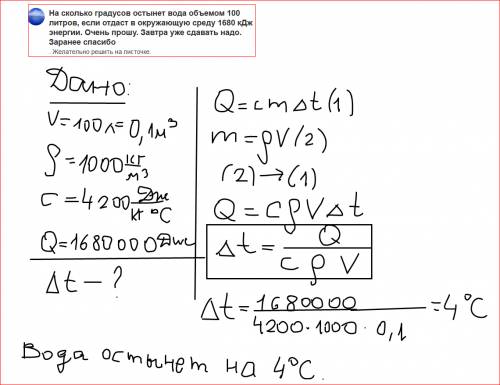 На сколько градусов остынет вода объемом 100
литров, если отдаст в окружающую среду 1680 кДж
энергии. Очень прошу. Завтра уже сдавать надо.
Заранее спасибо
Желательно решить на листочке.
Дано:
V=100л=0,1м³
ρ=1000 кг/м³
c=4200 Дж/кг °C
Q=1680000Дж
Δt — ?
Q=cmΔt(1)
m=ρV(2)
(2)→(1)
Q=CρVΔt
Δt=Q/CρV
Δt=1680000/4200·1000·0,1=4°C
Вода остынет на 4°C.